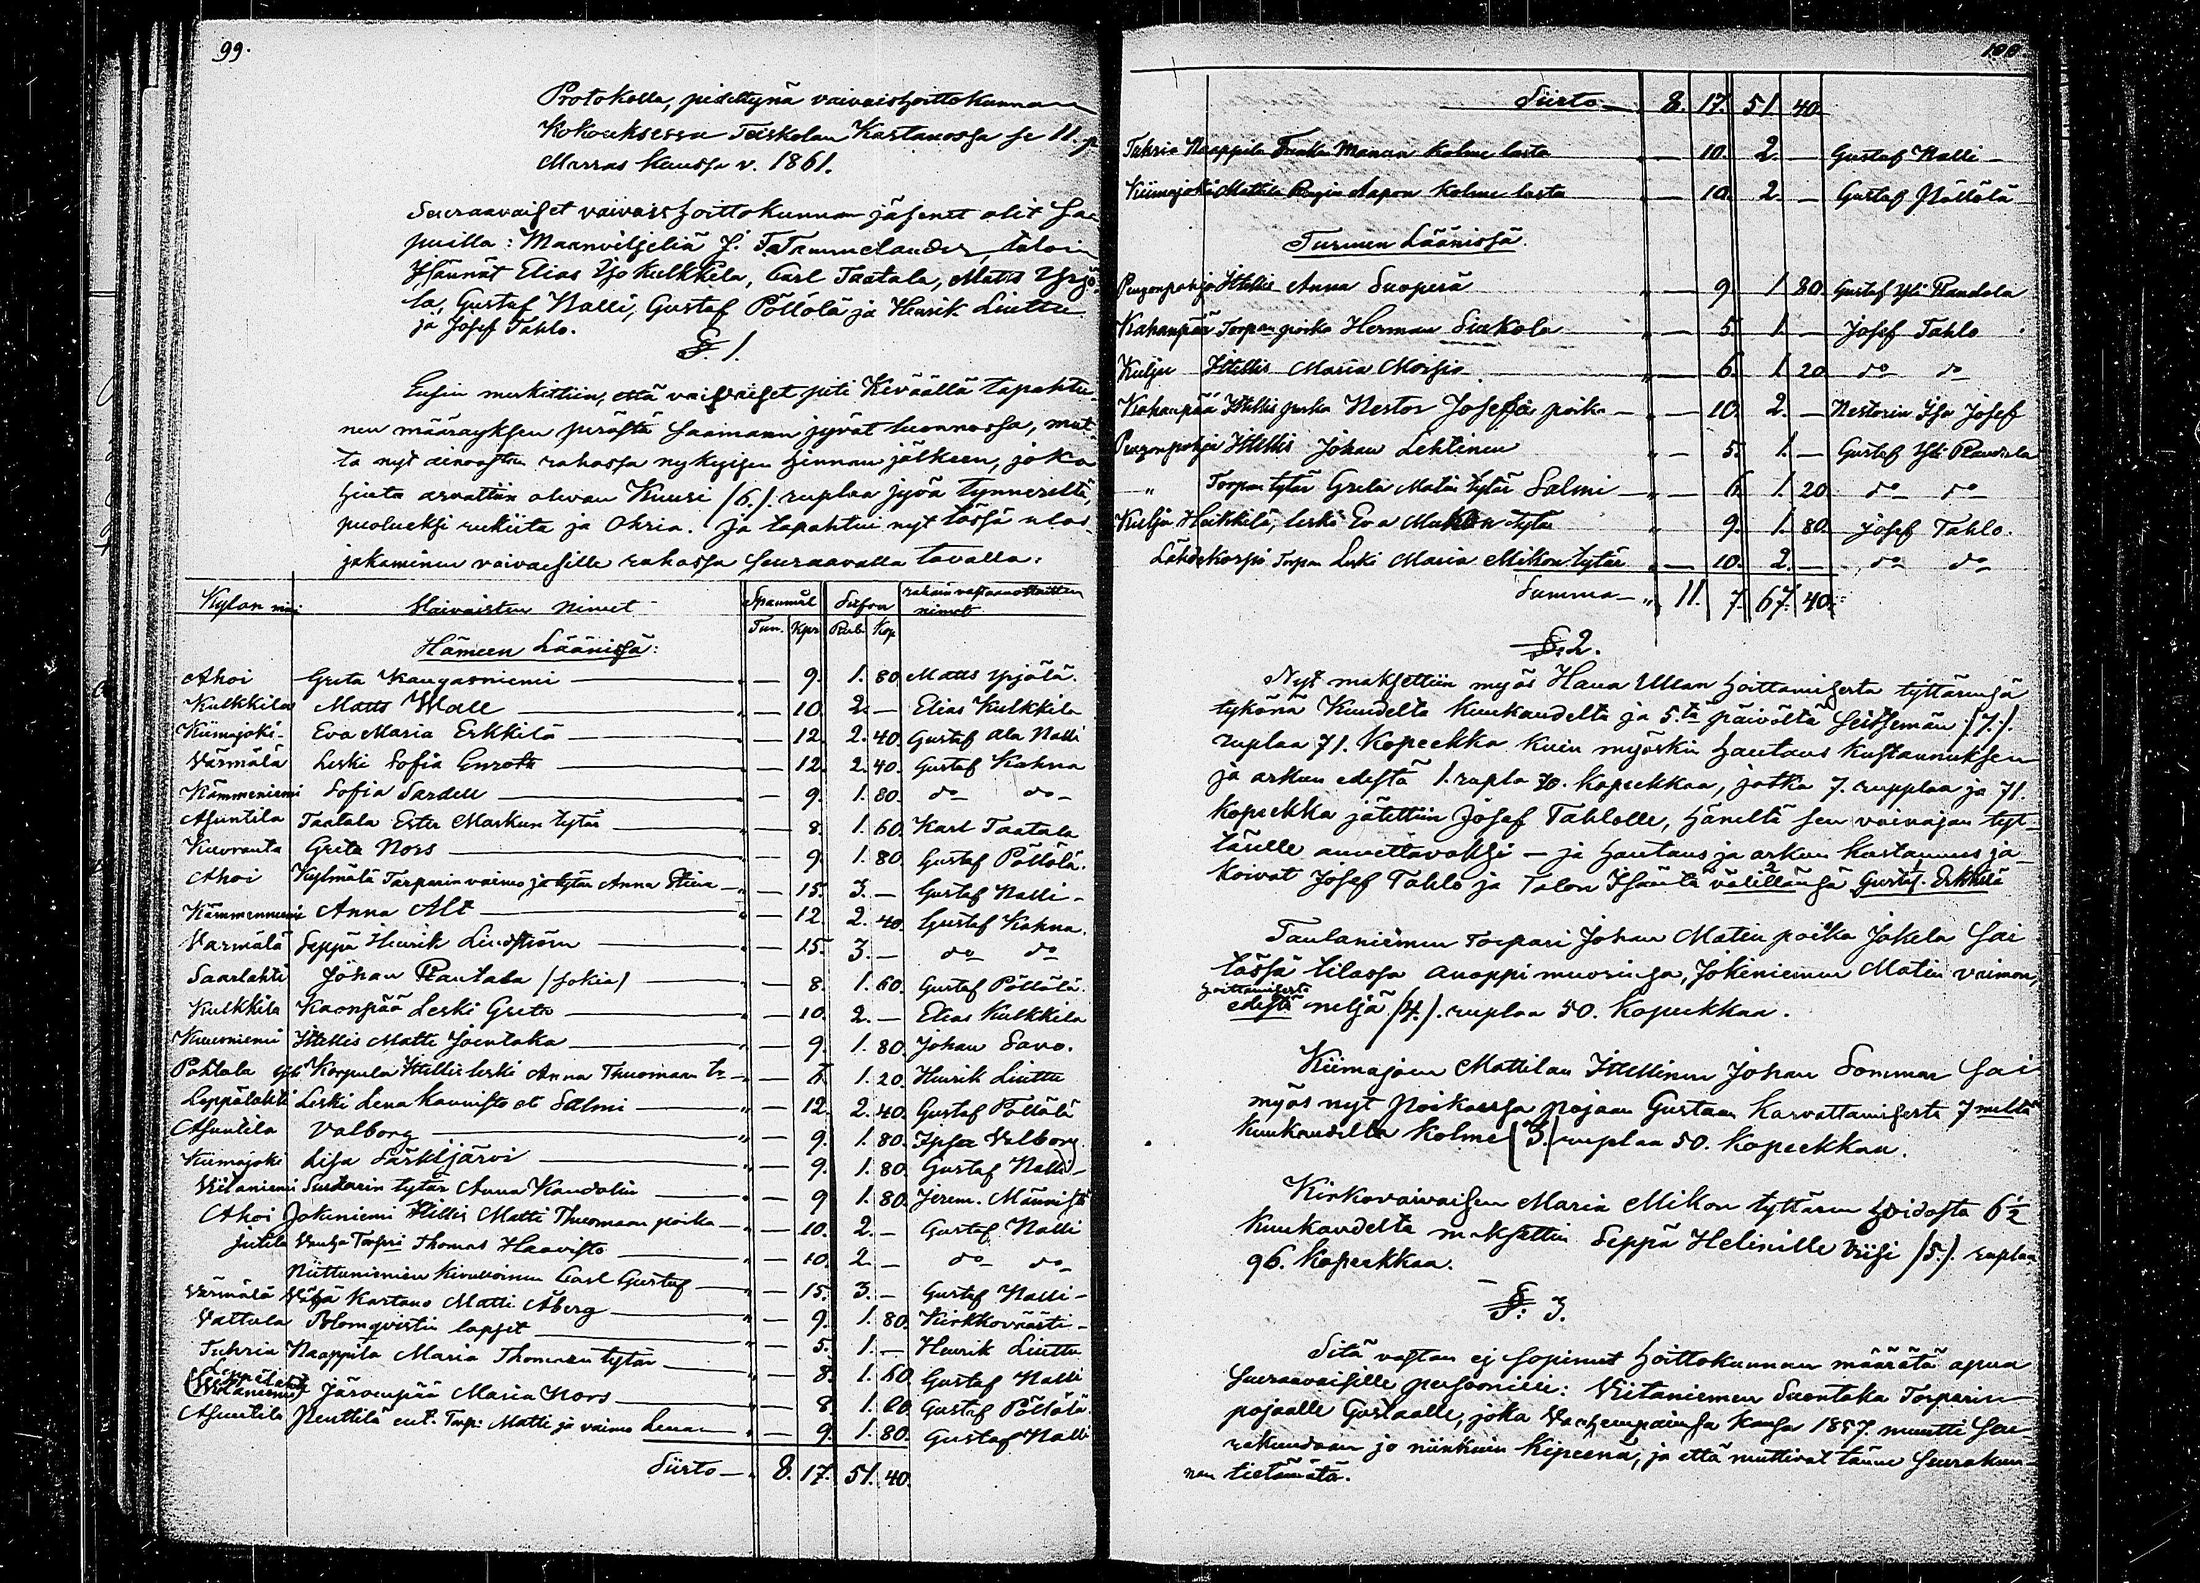 99.
Protokolla, pidettynä vaivaishoittokunnan
Kokouksessa Teiskolan Kartanossa se 11. p
Marras kuussa v. 1861.
Seuraavaiset vaivais hoittokunnan jäsenet olit sa
puilla: Maanviljeliä J. Tammelander, taloin
Isännät Elias Yjo Kulkkila, Carl Taatala, Matts Yrjö
la, Gustaf Nalli, Gustaf Pöllölä ja Henrik Liuttu
ja Josef Tahlo.
§. 1.
Ensin merkittiin, että vaivaiset piti Keväällä tapahtu-
nen määräyksen perästä saamann jyvät luonnossa, mut-
ta nyt ainoastan rahassa nykyisen hinnan jälkeen, joka
hinta arvattiin olevan Kuusi /6./. ruplaa jyvä tynneriltä,
puolueksi rukiita ja Ohria. Ja tapahtui nyt tässä ulos-
jakaminen vaivaisille rahassa seuraavalla tavalla:
Kylän nimi Vaivaisten Nimet Spanmål Siitva rahain vastaanottaitten nimet
Tun. Kpr. Rub. Kop.
Hämeen Läänissä:
Ahoi Greta Kangasniemi " — 9. 1. 80 Matts Yrjölä.
Kulkkila Matts Wall " — 10. 2. — Elias Kulkkila
Kiimajoki Eva Maria Erkkilä " — 12. 2. 40. Gustaf Ala Nalli
Värmälä Leski Sofia Enroth " — 12. 2. 40. Gustaf Kahna
Kämmeniemi Sofia Sardell " — 9. 1. 80. do do
Asuntila Taatala Ester Markun tytär " — 8. 1. 60. Karl Taatala
Kuoranta Greta Nors " — 9. 1. 80. Gustaf Pöllölä.
Ahoi Kylmälä Torparin vaimo ja tytär Anna Stina " — 15. 3. — Gustaf Nalli
Kämmenniemi Anna Alt " — 12. 2. 40. Gustaf Kahna.
Varmälä Seppä Henrik Lindström " — 15. 3. — do do
Saarlahti Johan Rantala /sokia/ " — 8. 1. 60. Gustaf Pöllölä.
Kulkkila Kaonpää Leski Greta " — 10. 2. — Elias Kulkkila
Kuurniemi Ittellis Matti Jointaka " — 9. 1. 80. Johan Savo.
Pohtola Yli Korpula Ittellis leski Anna Thuomaan tr " — 6. 1. 20. Henrik Liuttu
Leppälahti Leski Lena Kaunisto et Salmi " — 12. 2. 40. Gustaf Pöllölä
Asuntila Valborg " — 9. 1. 80. Ipse Valborg
Kiimajoki Lisa Särkijärvi " — 9. 1. 80. Gustaf Nalli
Viitaniemi Suutarin tytär Anna Kandolin " — 9 1. 80. Jerem. Männistö
Ahoi Jokiniemi Ittellis Matti Thuomaan poika " — 10. 2. — Gustaf Nalli
Jutila Vanha Torpri Thomas Haavisto " — 10. 2. — do do
Niittuniemen Kivulloinen Carl Gustaf " — 15. 3. — Gustaf Nalli
Värmälä Vähä Kartano Matti Åberg " — 9. 1. 80. Kirkkoväärti
Vattula Blomqvistin lapset " — 5. 1. — Henrik Liuttu
Tuhria Naappila Maria Thomaan tytär " — 8. 1. 60. Gustaf Nalli
Leppälahti
(Viitaniemi) Järvenpää Maria Nors " — 8 1. 60 Gustaf Pöllölä.
Asuntila Penttilä ent. Torp: Matti ja vaimo Lena " — 9. 1. 80. Gustaf Nalli
Siirto — " 8. 17. 51. 40.
100
Siirto — " 8. 17. 51. 40
Tuhria Naappila Manan Kolme lasta " — 10. 2. — Gustaf Nalli
Kiimajoki Mattila Aapon Kolme lasta " — 10. 2. — Gustaf Pöllölä
Turuun Läänissä.
Paaponpohja Ittellis Anna Suoperä " — 9. 1. 80. Gustaf Yli Randala
Kahanpää Torpan poika Herman Siukola " — 5. 1. — Josef Tahlo
Kulju Ittellis Maria Moisio " — 6. 1. 20 do do
Kahanpää Ittellis poika Nestor Josefin poika — " — 10. 2. — Nestorin Isä Josef
Paaponpohja Ittellis Johan Lehtinen " — 5. 1. — Gustaf Yli Randala
" Torpan tytär Greta Matin tytär Salmi — " — 6. 1. 20 do do
Kulju Heikkilä, leski Eva tytär " — 9. 1. 80. Josef Tahlo.
Lähdekorpi Torpan Leski Maria Mikon tytär " — 10. 2. — do do
Summa — " 11. 7. 67. 40.
§. 2.
Nyt maksettiin myös Hana Ullan hoittamisesta tyttärensä
tykönä Kuudelta kuukaudelta ja 5.tä päivältä seittemän /7./.
ruplaa 71. Kopeekka kuin myöskin hautaus kustannuksen
ja arkun edestä 1. rupla 70. kopeekkaa, jotka 7. rupplaa ja 71.
Kopeekka jätettiin Josef Tahlolle, häneltä sen vaivajan tyt-
tärelle annettavaksi — ja hautaus ja arkun kustannus ja-
koivat Josef Tahlo ja Talon Isäntä välillänsä Gustaf. Erkkilä
Taulaniemen Torpari Johan Matin poika Jokela sai
tässä tilassa anoppi muorinsa, Jokiniemen Matin vaimon,
hoittamisesta
edestä neljä /4./. ruplaa 50. Kopeekkaa.
Kiimajoen Mattilan Ittellinen Johan Sommar sai
myös nyt poikansa pojaan Gustaan kasvattamisesta 7 meltä
kuukaudelta Kolme /3./ ruplaa 50. kopeekkaa.
Kirkovaivaisen Maria Mikon tyttären hoidosta 6 1/2
kuukaudelta maksettiin Seppä Helinille Viisi /5./. ruplaa
96. Kopeekkaa.
§. 3.
Sitä vastan ej sopinut hoittokunnan määrätä apua
seuraavaisille persoonille: Viitaniemen Suontaka Torparin
pojaalle Gustaalle, joka Vanhempainsa kansa 1857. muutti seu-
rakundaan jo niinkuin kipeenä, ja että muttivat tänne seurakun-
nan tietämätä.